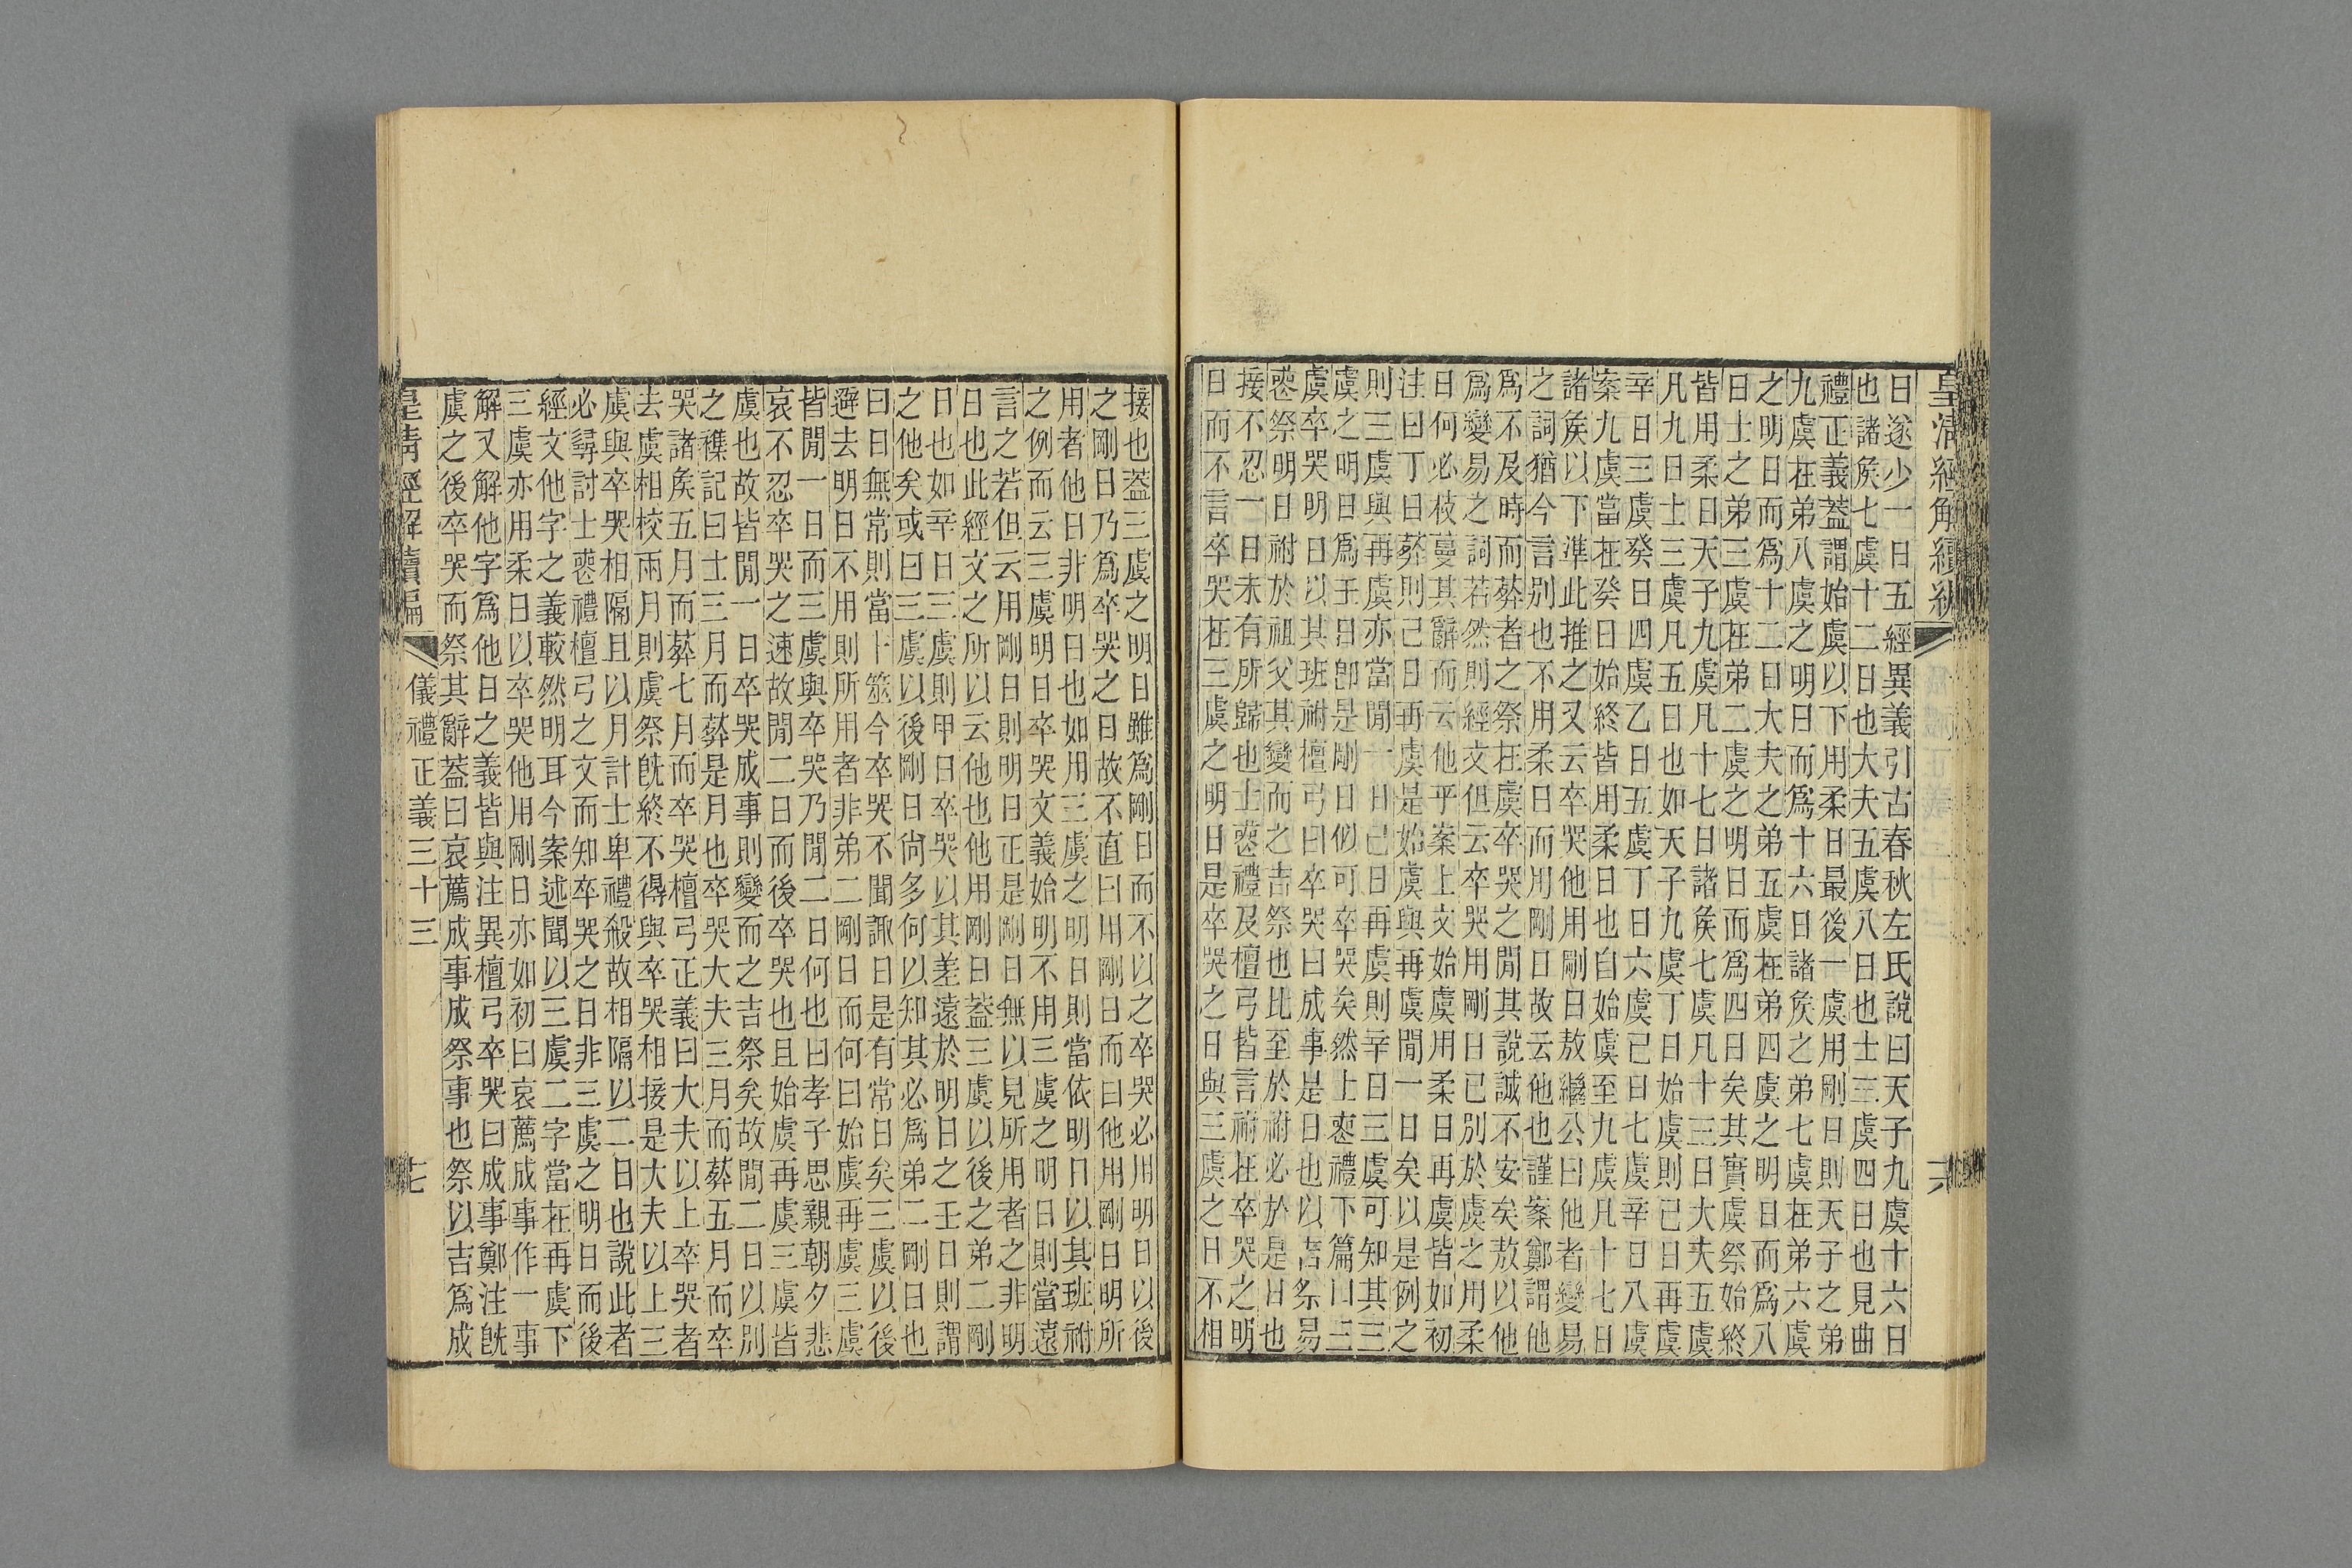 皇清經解續編
六
日遂少一日五經異義引古春秋左氏說曰天子九虞十六日
也諸矦七虞十二日也大夫五虞八日也士三虞四日也見曲
禮正義葢謂始虞以下用柔日最後一虞用剛日則天子之弟
九虞在弟八虞之明日而爲十六日諸矦之弟七虞在弟六虞
之明日而爲十二日大夫之弟五虞在弟四虞之明日而爲八
日士之弟三虞在弟二虞之明日而爲四日矣其實虞祭始終
皆用柔日天子九虞凡十七日諸矦七虞凡十三日大夫五虞
凡九日士三虞凡五日也如天子九虞丁日始虞則已日再虞
辛日三虞癸日四虞乙日五虞丁日六虞已日七虞辛日八虞
案九虞當在癸日始終皆用柔日也自始虞至九虞凡十七日
諸矦以下準此推之又云卒哭他用剛日敖繼公曰他者變易
之詞猶今言別也不用柔日而用剛日故云他也謹案鄭謂他
爲不及時而葬者之祭在虞卒哭之閒其說誠不安矣敖以他
爲變易之詞若然則經文但云卒哭用剛日已別於虞之用柔
日何必枝蔓其辭而云他乎案上文始虞用柔日再虞皆如初
注曰丁日葬則己日再虞是始虞與再虞閒一日矣以是例之
則三虞與再虞亦當閒一日己日再虞則辛日三虞可知其三
虞之明日爲壬日卽是剛日似可卒哭矣然上喪禮下篇曰三
虞卒哭明日以其班祔檀弓曰卒哭曰成事是日也以吉祭易
喪祭明日祔於祖父其變而之吉祭也比至於祔必於是日也
接不忍一日未有所歸也士喪禮及檀弓皆言祔在卒哭之明
日而不言卒哭在三虞之明日是卒哭之日與三虞之日不相
接也葢三虞之明日雖爲剛日而不以之卒哭必用明日以後
之剛日乃爲卒哭之日故不直曰用剛日而曰他用剛日明所
用者他日非明日也如用三虞之明日則當依明日以其班祔
之例而云三虞明日卒哭文義始明不用三虞之明日則當遠
言之若但云用剛日則明日正是剛日無以見所用者之非明
日也此經文之所以云他也他用剛日葢三虞以後之弟二剛
日也如辛日三虞則甲日卒哭以其差遠於明日之壬日則謂
之他矣或曰三虞以後剛日尙多何以知其必爲弟二剛日也
曰曰無常則當卜筮今卒哭不聞諏日是有常日矣三虞以後
避去明日不用則所用者非弟二剛日而何曰始虞再虞三虞
皆閒一日而三虞與卒哭乃閒二日何也曰孝子思親朝夕悲
哀不忍卒哭之速故閒二日而後卒哭也且始虞再虞三虞皆
虞也故皆閒一日卒哭成事則變而之吉祭矣故閒二日以別
之襍記曰士三月而葬是月也卒哭大夫三月而葬五月而卒
哭諸矦五月而葬七月而卒哭檀弓正義曰大夫以上卒哭者
去虞相校兩月則虞祭旣終不得與卒哭相接是大夫以上三
虞與卒哭相隔且以月計士卑禮殺故相隔以二日也說此者
必尋討士喪禮檀弓之文而知卒哭之日非三虞之明日而後
經文他字之義較然明耳今案述聞以三虞二字當在再虞下
三虞亦用柔日以卒哭他用剛日亦如初曰哀薦成事作一事
解又解他字爲他日之義皆與注異檀弓卒哭曰成事鄭注旣
虞之後卒哭而祭其辭葢曰哀薦成事成祭事也祭以吉爲成
皇清經解續編
儀禮正義三十三
七